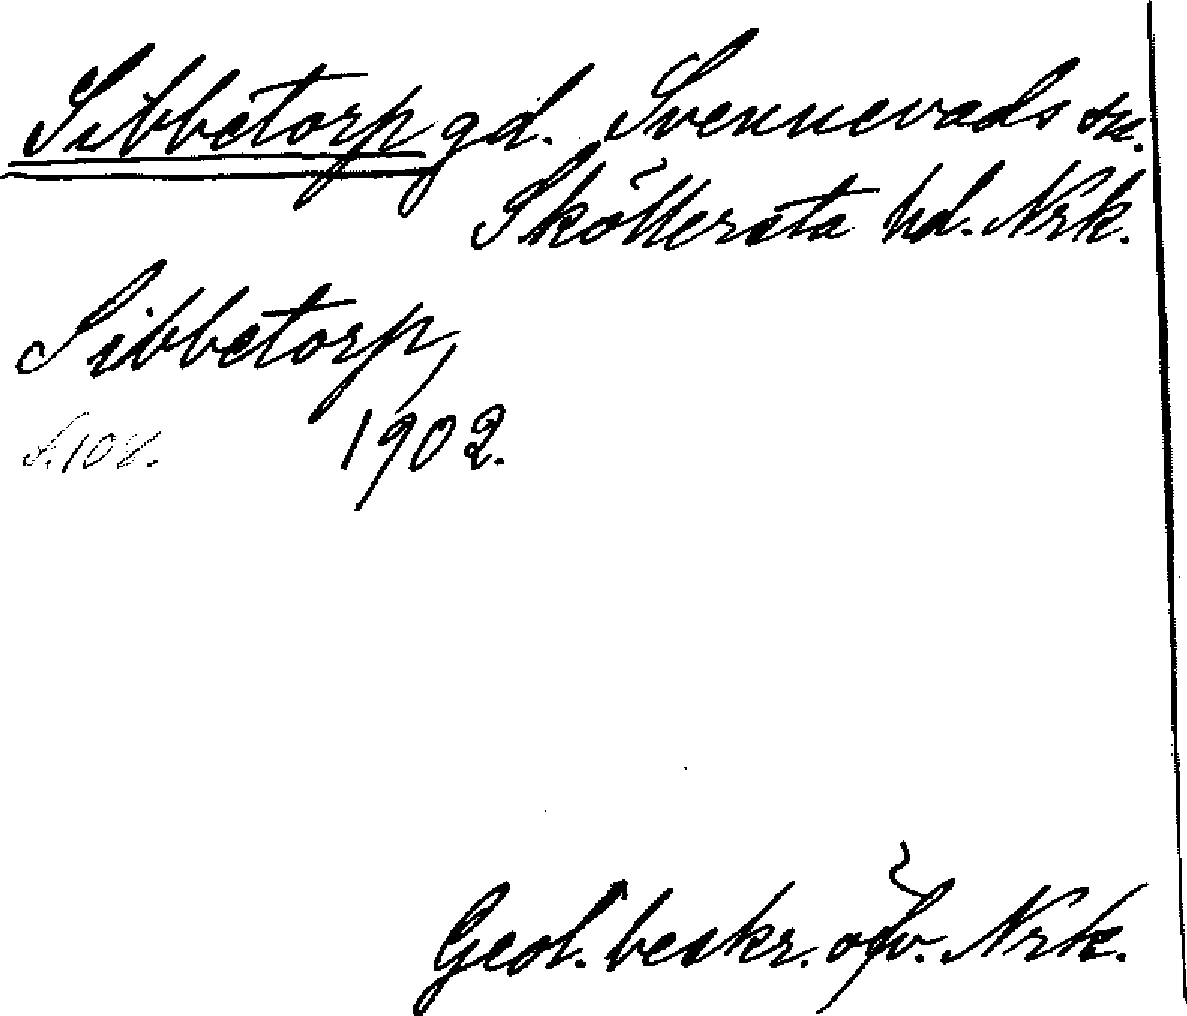 Sibbetorp gd. Svennevads sn.
Sköllersta hd. Nrk.
Sibbetorp,
S. 108. 1902.
Geol. beskr. öfv. Nrk.